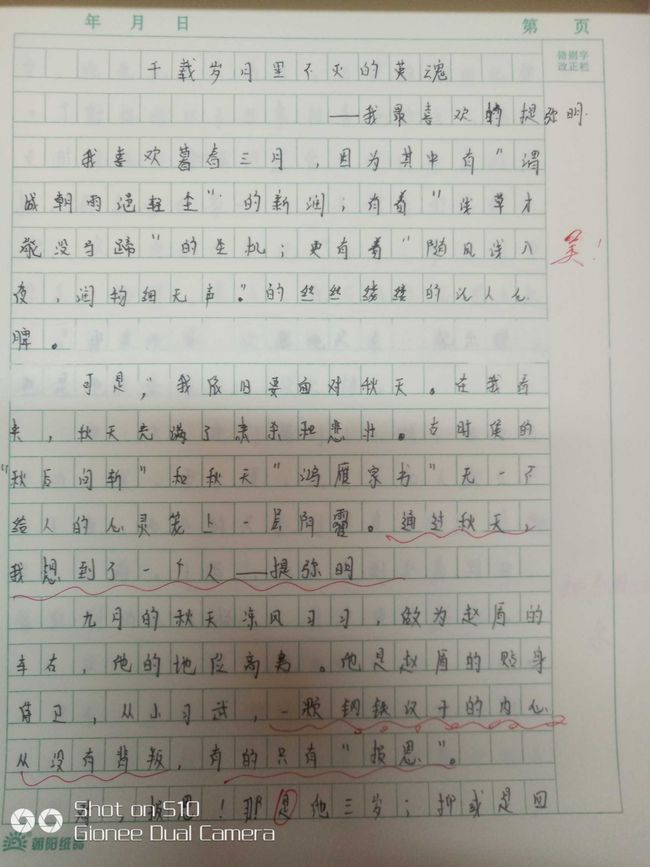 年 月 日 第 页
错别字
改正栏
千载岁月里不灭的英魂
——我最喜欢的提弥明
我喜欢暮春三月，因为其中有“渭
城朝雨浥轻尘”的新润；有着“浅草才
能没马蹄”的生机；更有着“随风浅入
夜，润物细无声”的丝丝缕缕的沁人心
美！
脾。
可是，我依旧要面对秋天。在我看
来，秋天充满了肃杀和悲壮。古时候的
“秋后问斩”和秋天“鸿雁家书”无一不
给人的心灵笼上一层阴霾。通过秋天，
我想到了一个人——提弥明
九月的秋天凉风习习，做为赵盾的
车右，他的地位高贵。他是赵盾的贴身
侍卫，从小习武，一颗钢铁汉子的内心
从没有背叛，有的只有“报恩”。
，报恩！那是他三岁；抑或是四
Shot on S10
Gionee Dual Camera
朝阳纸品